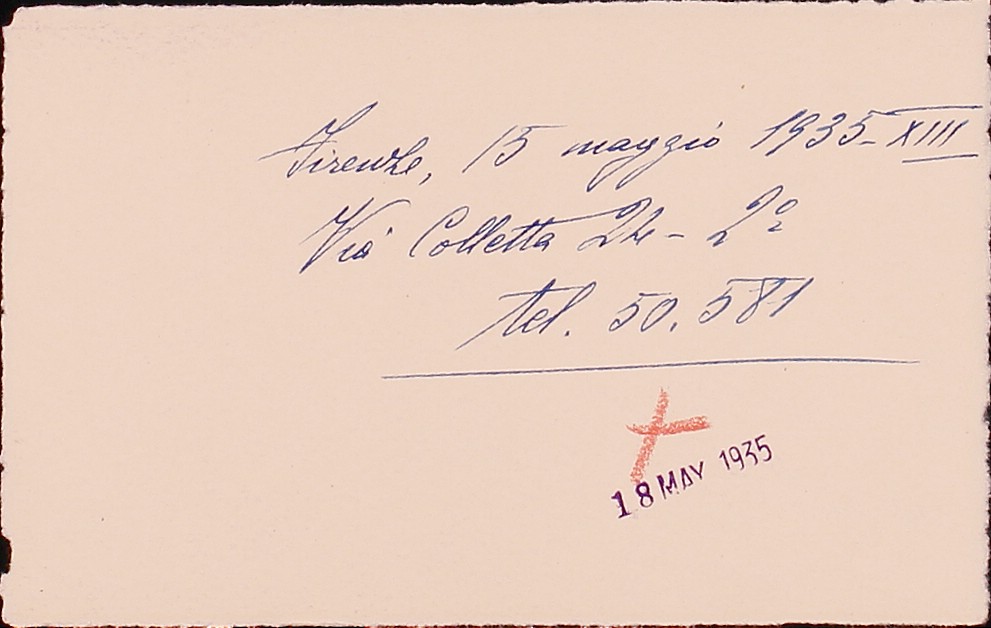 Firenze, 15 maggio 1935-XIII
Via Colletta 24 - 2º
tel. 50.581
18 MAY 1935